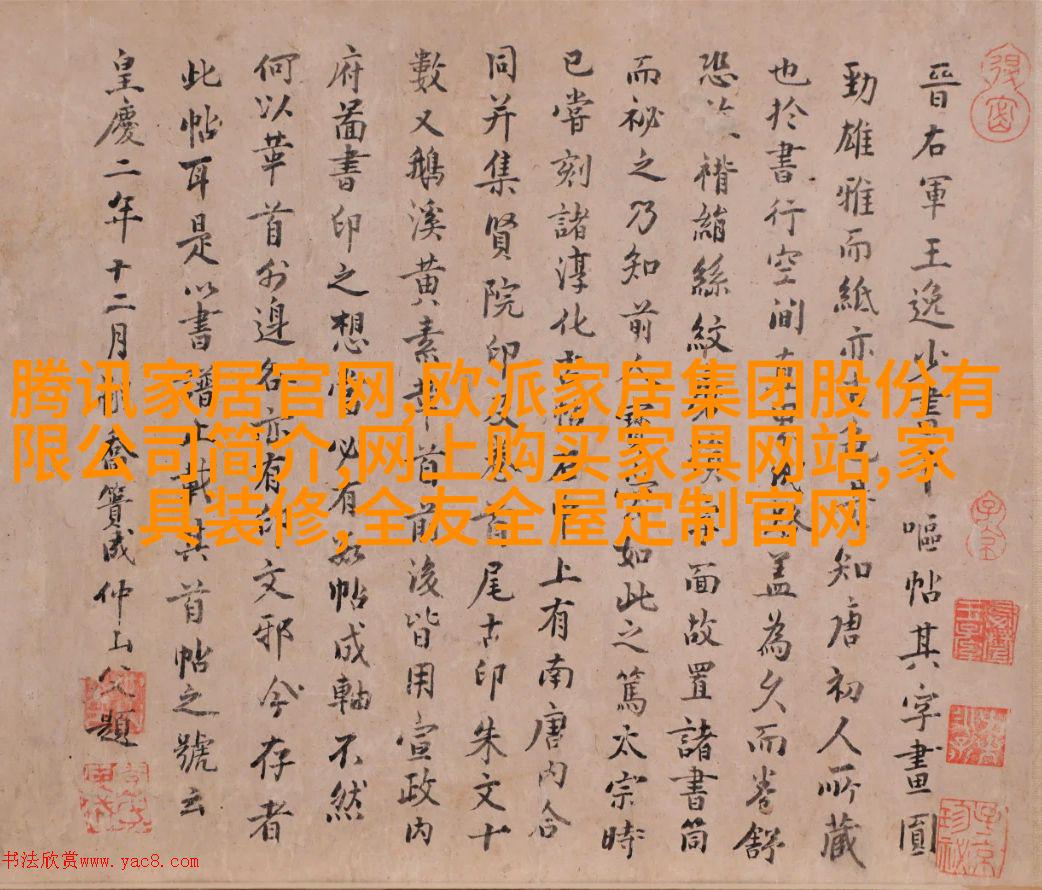 晉右軍王逸少書平嘔帖其字畫圓
勁雄雅而紙亦古知唐初人所藏
也於書行空間蓋為久而卷舒
恐褙絹絲紋面故置諸書筒
而祕之乃知前如此之篤太宗時
已嘗刻諸淳化上有南唐內合
同并集賢院印及尾古印朱文十
數又鵝溪黃素首前後皆用宣政內
府啚書印之想當必有此帖成軸不然
何以華首外邊名亦有印文邪今存者
此帖耳是以書譜止載其首帖之號云
皇慶二年十二月喬簣成仲山父題
腾讯家居官网,欧派家居集团股份有
限公司简介,网上购买家具网站,家
具装修,全友全屋定制官网
书法欣赏www.yac8.com